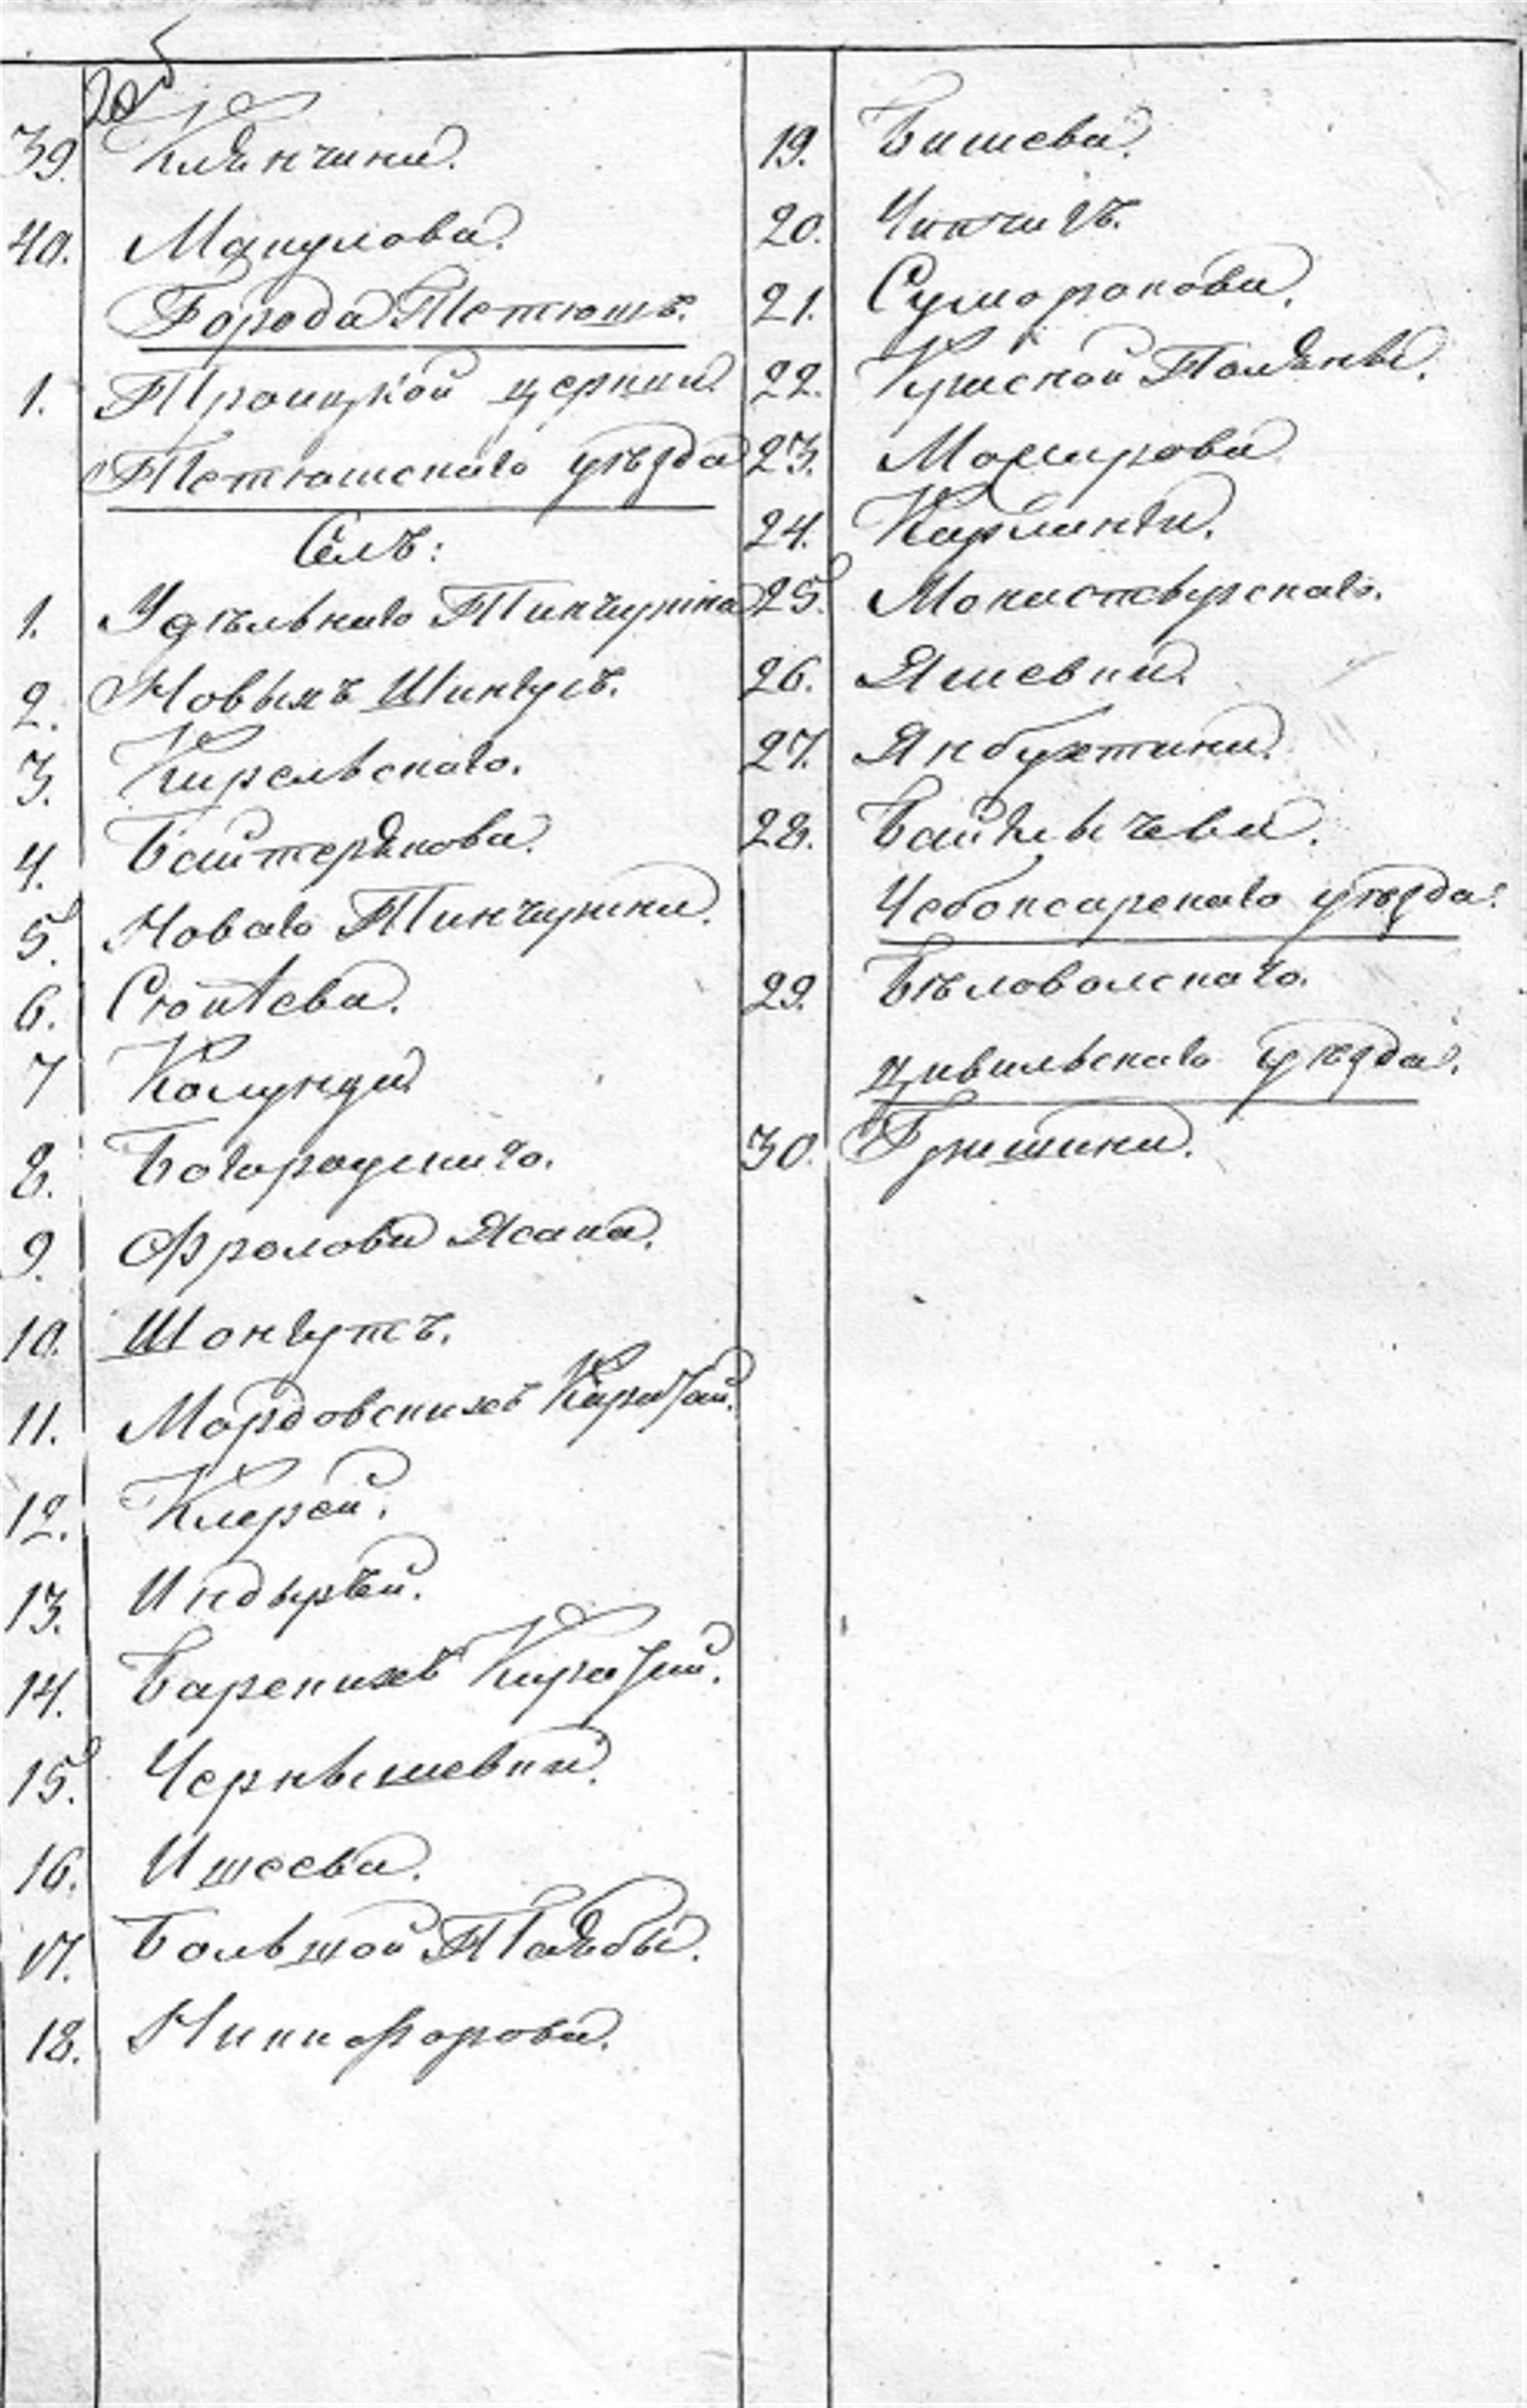 20б
39. Клянчина.
40. Макулова.
Города Тетюшъ.
1. Троицкой церкви.
Тетюшскаго уѣзда
Селъ:
1. Удѣльнаго Тинчурина
2. Новыхъ Шингусъ.
3. Кирельскаго.
4. Байтерякова.
5. Новаго Тинчурина.
6. Сюкѣева.
7 Колунца
8. Богородскаго.
9. Фролова Ясака.
10. Шонгутъ.
11. Мордовскихъ Каратай.
12. Клерей.
13. Индырѣй.
14. Барскихъ Каратай.
15. Чернышевки.
16. Ишеева.
17. Большой Таябы.
18. Никифорова.
19. Бишева.
20. Чинчигъ.
21. Суморокова.
22. Красной Поляны.
23. Мосирова
24. Карланги.
25. Монастырскаго.
26. Яшевки.
27. Янбухтина.
28. Байглычева.
Чебоксарскаго уѣзда:
29. Бѣловолскаго.
Цивильскаго уѣзда.
30. Гришина.